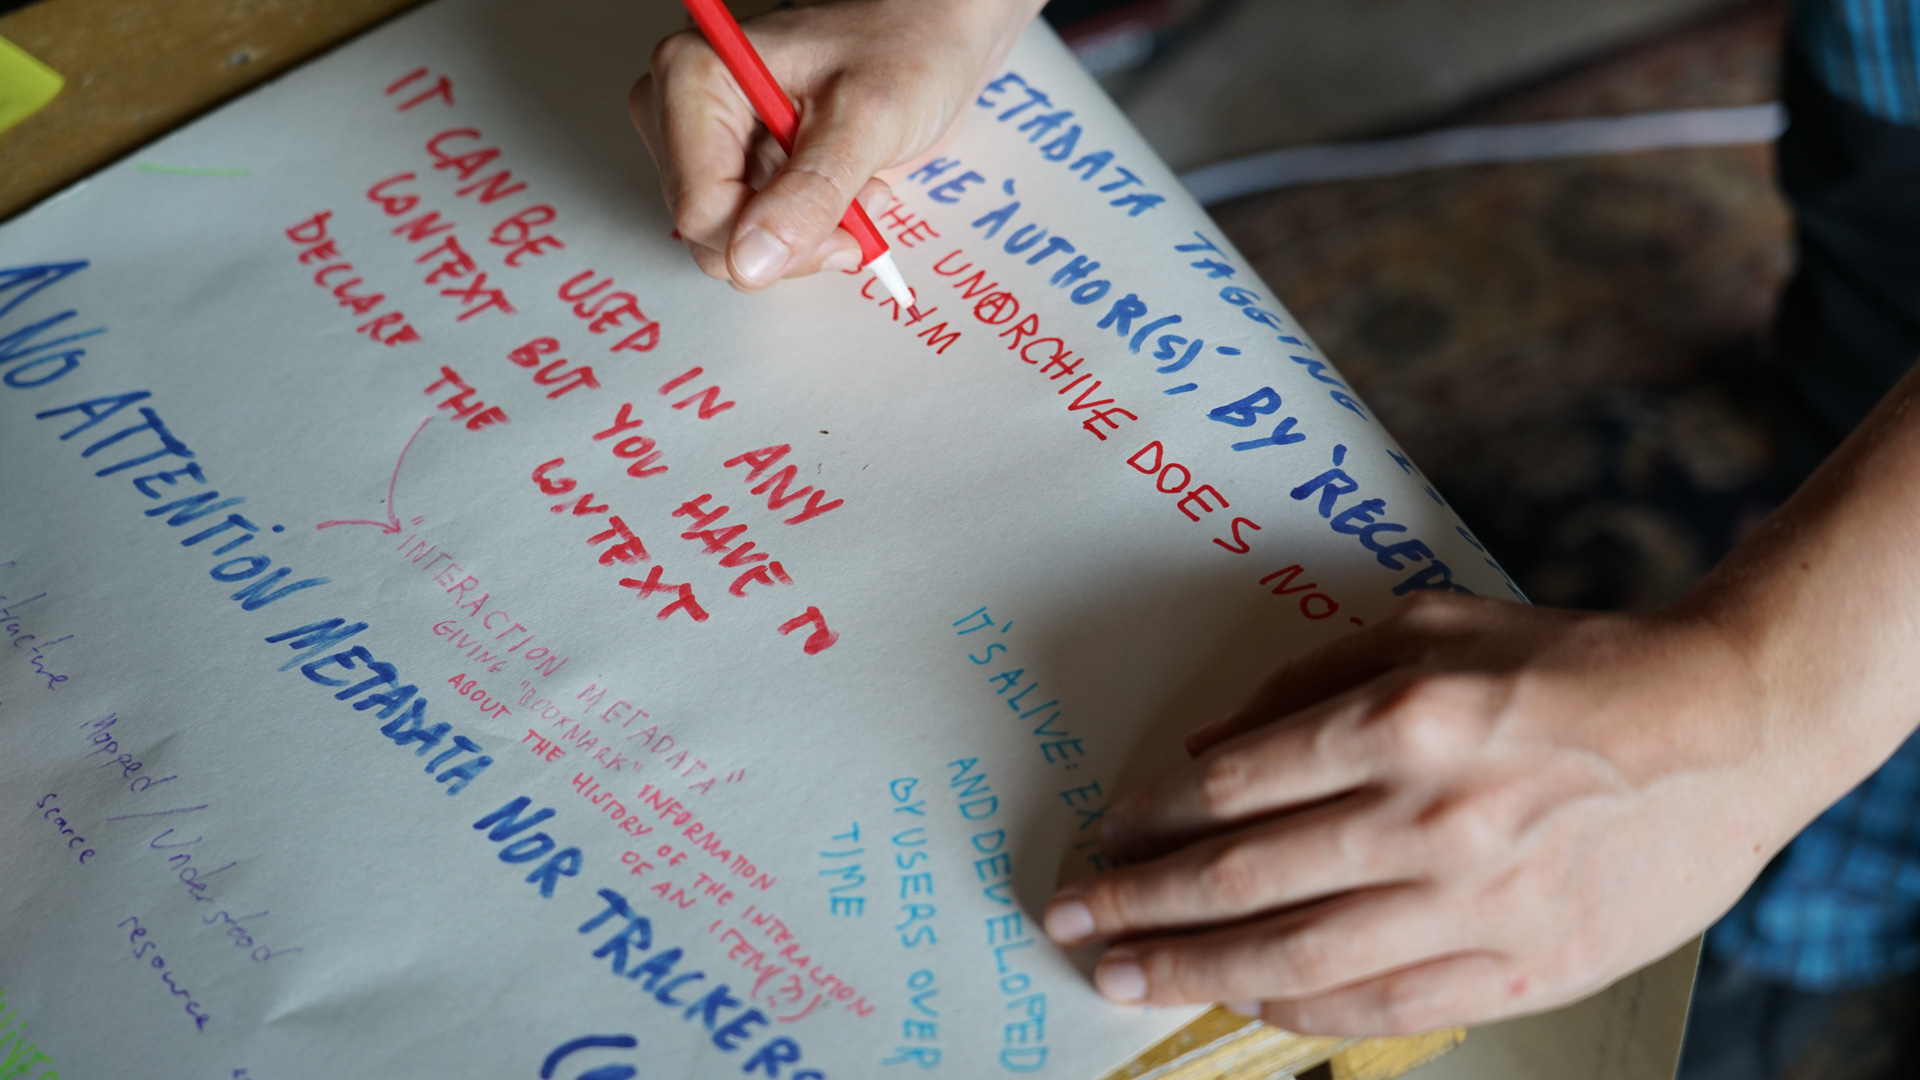 IT CAN BE USED IN ANY
CONTEXT BUT YOU HAVE TO
DECLARE THE CONTEXT
ETADATA TAGGING
HE 'AUTHOR(S)', BY 'RECEP
THE UNARCHIVE DOES NOT
NO ATTENTION METADATA NOR TRACKERS
"INTERACTION METADATA"
GIVING "BOOKMARK" INFORMATION
ABOUT THE HISTORY OF THE INTERACTION
OF AN ITEM(?)
IT'S ALIVE:
AND DEVELOPED
BY USERS OVER
TIME
Mapped / Understood
scarce resource